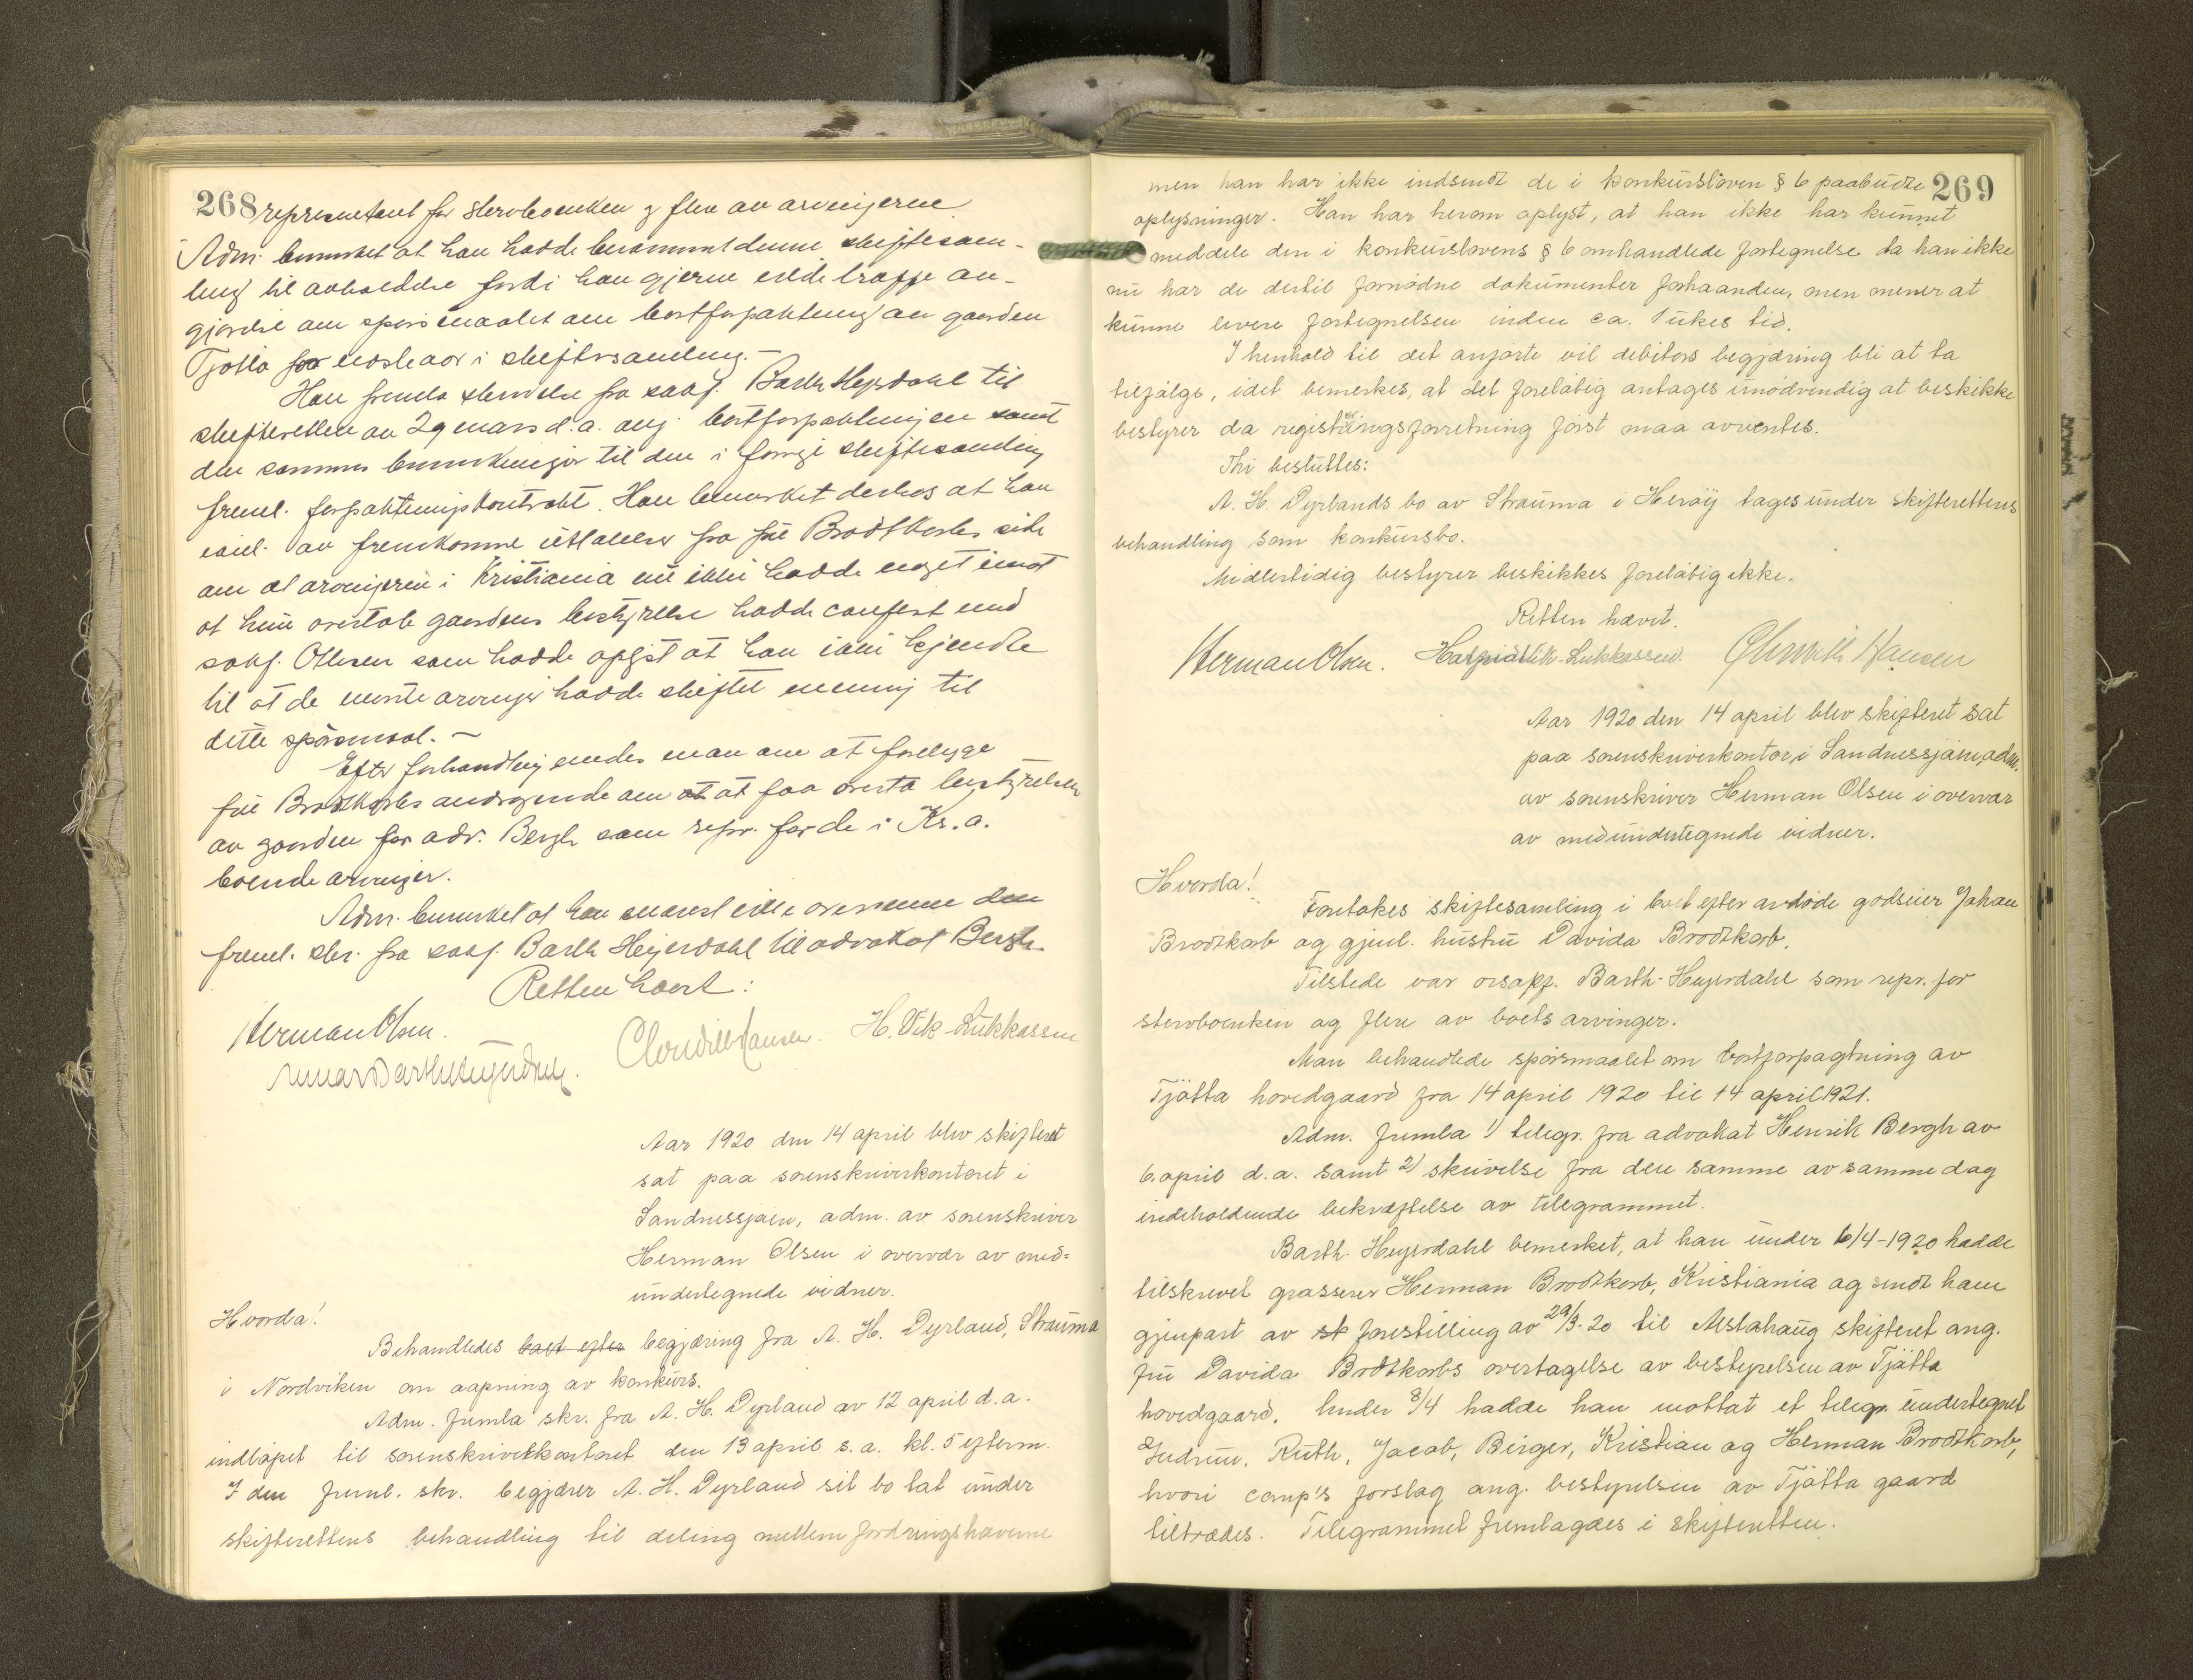 268
representant for sterboenken og flere av arvingerne
Adm. bemerket at han hadde berammet denne skiftesam-
ling til avholdelse fordi han gjerne vilde træffe av-
gjørelse om spørsmaalet om bortforpaktning av gaarden
Tjøtta for næste aar i skiftesamling.-
Han fremla skrivelse fra sakf. Barth Heyerdahl til
skifteretten av 29 mars d.a. ang. bortforpaktningen samt
den sammes bemerkninger til den i forrige skiftesamling
freml. forpaktningskontrakt. Han bemerket derhos at han
av fremkomne uttalelser fra fru Brodtkorbs side
om at arvingerne i Kristiania nu ikke hadde noget imot
at hun overtok gaardens bestyrelse hadde confert med
sakf. Ottesen som hadde oplyst at han ikke kjendte
til at de nævnte arvinger hadde skiftet mening til
dette spørsmaal. -
Efter forhandling enedes man om at forelægge
frue Brodtkorbs andragende om at at faa overta bestyrelsen
av gaarden for adv. Bergh som repr. for de i Kr.a.
boende arvinger.
Adm. bemerket at han snarest vilde oversende den
freml. skr. fra sakf. Barth Heyerdahl til advokat Bergh.
Retten hævet:
Herman Olsen. H. Vik-Lukkassen
Barth Heyerdahl.
Aar 1920 den 14 april blev skifteret
sat paa sorenskriverkontoret i
Sandnessjøen, adm. av sorenskriver
Herman Olsen i overvær av med=
undertegnede vidner.
Hvorda!
Behandledes boet efter begjæring fra A. H. Dyrland, Strauma
i Nordviken om aapning av konkurs.
Adm. fremla skr. fra A. H. Dyrland av 12 april d.a.
indløpet til sorenskriverkontoret den 13 april s.a. kl. 5 efterm.
I den freml. skr. begjærer A. H. Dyrland sit bo tat under
skifterettens behandling til deling mellem fordringshaverne
269
men han har ikke indsendt de i konkursloven § 6 paabudte
oplysninger. Han har herom oplyst, at han ikke har kunnet
meddele den i konkurslovens § 6 omhandlede fortegnelse da han ikke
nu har de dertil fornødne dokumenter forhaanden, men mener at
kunne levere fortegnelsen inden ca. 1 ukes tid.
I henhold til det anførte vil debitors begjæring bli at ta
tilfølge, idet bemerkes, at det foreløbig antages unødvendig at beskikke
bestyrer da registreringsforretning først maa avventes.
Thi besluttes:
A. H. Dyrlands bo av Strauma i Herøy tages under skifterettens
behandling som konkursbo.
Midlertidig bestyrer beskikkes foreløbig ikke.
Retten hævet.
Herman Olsen. Vik-Lukkassen. Hansen
Aar 1920 den 14 april blev skifteret sat
paa sorenskriverkontor i Sandnessjøen, adm.
av sorenskriver Herman Olsen i overvær
av medundertegnede vidner.
Hvorda!
Foretokes skiftesamling i boet efter avdøde godseier Johan
Brodtkorb og gjenl. hustru Davida Brodtkorb.
Tilstede var orsakf. Barth-Heyerdahl som repr. for
stervboenken og flere av boets arvinger.
Man behandlede spørsmaalet om bortforpagtning av
Tjøtta hovedgaard fra 14 april 1920 til 14 april 1921.
Adm. fremla 1) telegr. fra advokat Henrik Bergh av
6. april d.a. samt 2) skrivelse fra den samme av samme dag
indeholdende bekræftelse av telegrammet.
Barth-Heyerdahl bemerket, at han under 6/4-1920 hadde
tilskrevet grosserer Herman Brodtkorb, Kristiania og sendt ham
gjenpart av sk forestilling av 29/3-20 til Alstahaug skifteret ang.
fru Davida Brodtkorbs overtagelse av bestyrelsen av Tjøtta
hovedgaard. Under 8/4 hadde han mottat et telegr. undertegnet
Gudrun, Ruth, Jacob, Birger, Kristian og Herman Brodtkorb,
hvori comp's forslag ang. bestyrelsen av Tjøtta gaard
tiltrædes. Telegrammet fremlagdes i skifteretten.